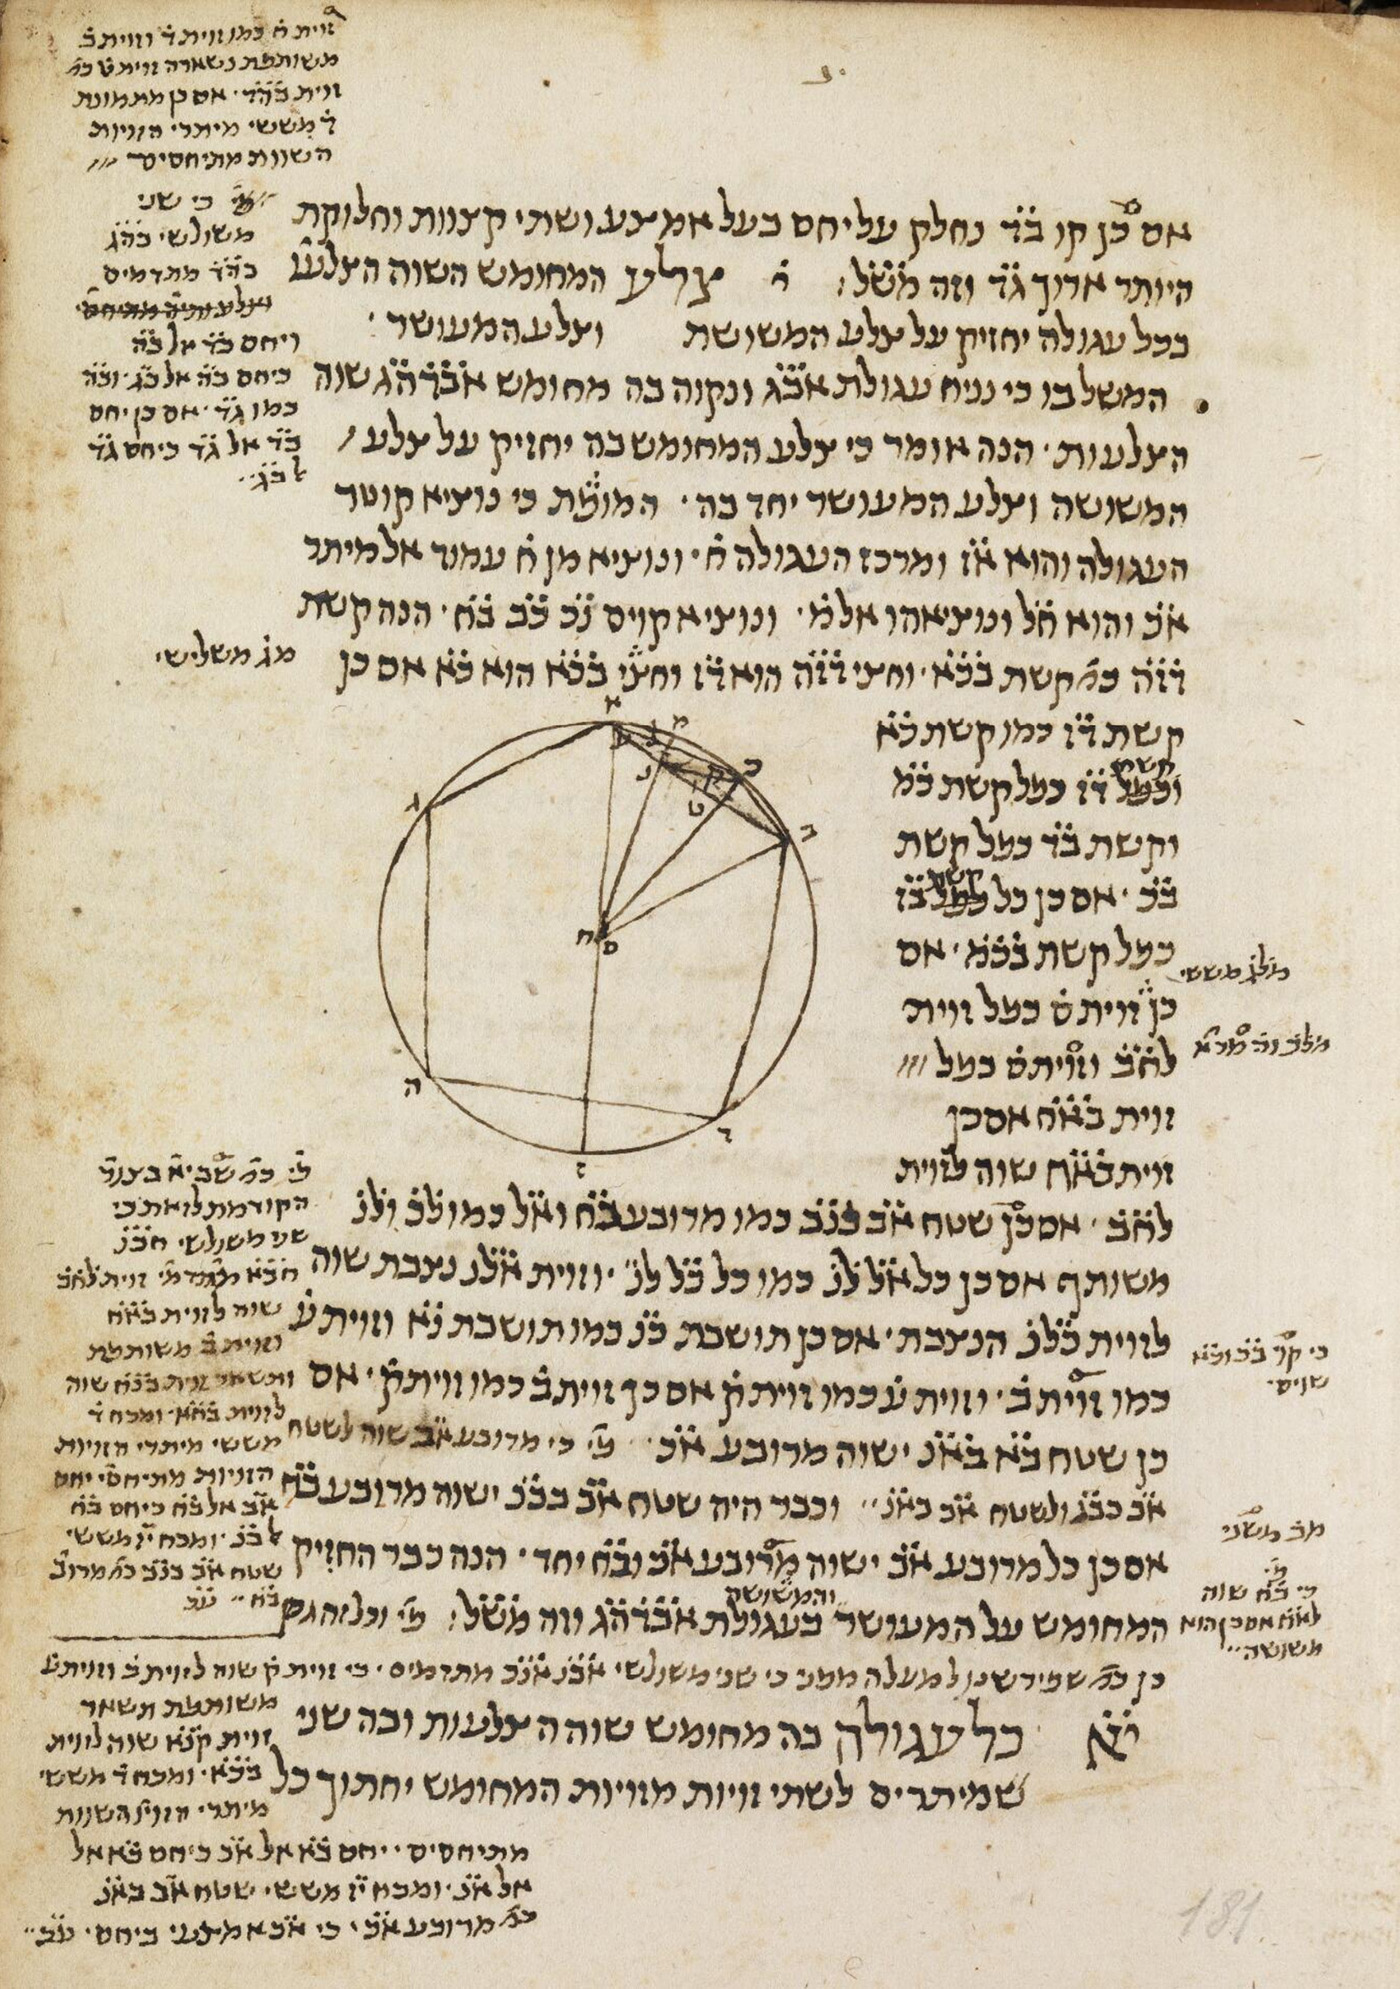 זוית ח כמו זוית ד וזוית ב
משותפת נשארה זוית ט כמ'
זוית בהד . אם כן מתמונת
ד מששי מיתרי הזויות
השוות מתיחסים
כי שני
משולשי בהג
בהד מתדמים
ויחס בד אל בה
כיחס בה אל בג . ובה
כמו גד . אם כן יחס
בד אל גד כיחס גד
לבג
אם כן קו בד נחלק על יחס בעל אמצע ושתי קצוות וחלוקת
היותר ארוך גד וזה משל :     י     צלע המחומש השוה הצלעו'
בכל עגולה יחזיק על צלע המשושת     וצלע המעושר .
המשל בו כי נניח עגולת אבג ונקוה בה מחומש אבדהג שוה
הצלעות . הנה אומר כי צלע המחומש בה יחזיק על צלע
המשושה וצלע המעושר יחד בה . המופת כי נוציא קוטר
העגולה והוא אז ומרכז העגולה ח . ונוציא מן ח עמוד אל מיתר
אב והוא חל ונוציאהו אל מ . ונוציא קוים נכ כב בח . הנה קשת
דזה כמ' קשת בכא . וחצי דזה הוא דז וחצי בכא הוא כא אם כן
מג משלישי
קשת דז כמו קשת כא
קשת
וכפל דז כפל קשת כמ
וקשת בד כפל קשת
קשת
בכ . אם כן כל בז
כפל קשת בכמ . אם
מלג מששי
כן זוית ס כפל זוית
לחב וזוית ס כפל
זוית באח אם כן
זוית באח שוה לזוית
לחב . אם כן שטח אב בנב כמו מרובע בח ואל כמו לב ולנ
משותף אם כן כל אל לנ כמו כל בל לנ . וזוית אלנ נצבת שוה
לזוית בלנ הנצבת . אם כן תושבת בנ כמו תושבת נא וזוית ע
כמו זוית ב . וזוית ע כמו זוית ק אם כן זוית ב כמו זוית ק . אם
כן שטח בא באנ ישוה מרובע אכ . פי' כי מרובע אב שוה לשטח
אב בבנ ולשטח אב באנ . וכבר היה שטח אב בבנ ישוה מרובע בח
אם כן כל מרובע אב ישוה מרובע אכ ובח יחד . הנה כבר החזיק
והמשושה
המחומש על המעושר בעגולת אבדהג וזה משל : פי' וכל זה גם
כן כמ' שפירשנו למעלה ממני כי שני משולשי אבנ אנכ מתדמים . כי זוית ק שוה לזוית ב וזוית ע
פי' כמ' שביא' בצורה
הקודמת לזאת כי
שני משולשי חבנ
חבא מתדמי' זוית לחב
שוה לזוית באח
וזוית ב משותפת
ותשאר זוית בנח שוה
לזוית בחא . ומכח ד
מששי מיתרי הזויות
הזויות מתיחסי' יחס
אב אל בח כיחס בח
לבנ . ומכח יז מששי
שטח אב בנב כמ' מרוב'
בח
כי קו' בכ וכא
שוים .
מב משני
פי'
כי בח שוה
לאח אם כן הוא
משושה
יא     כל עגולה בה מחומש שוה הצלעות ובה שני
שמיתרים לשתי זויות מזויות המחומש יחתוך כל
משותפת תשאר
זוית קנא שוה לזוית
בכא . ומכח ד מששי
מיתרי הזוי' השוות
מתיחסים . יחס בא אל אכ כיחס בא אל
אל אנ . ומכח יז מששי שטח אב באנ
כמ' מרובע אכ . כי אכ אמצעי ביחס
א
מ
כ
ב
ל
נ
ט
ק
ג
ח
ס
ה
ד
ז
181